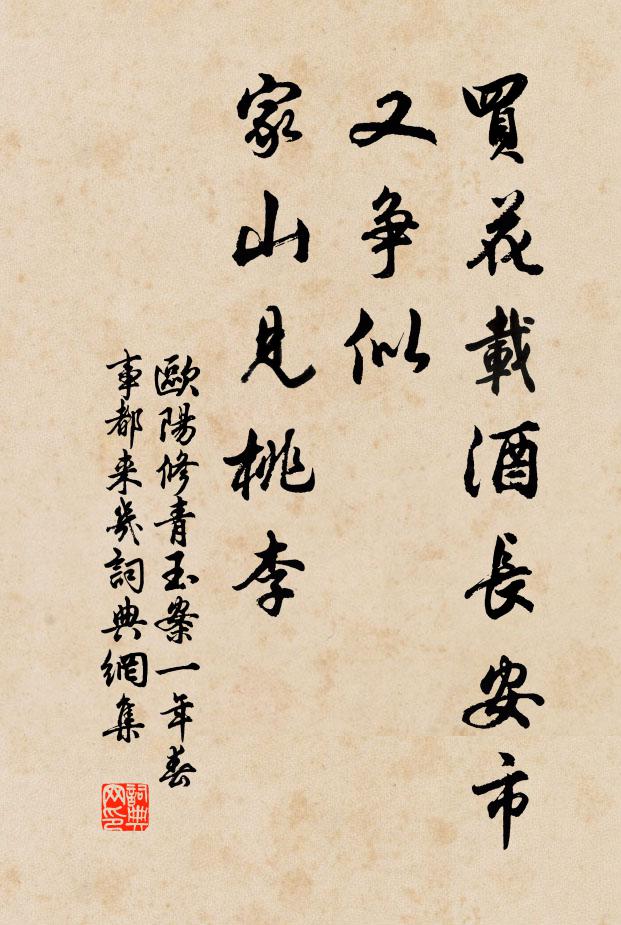 買花載酒長安市
又争似
家山見桃李
歐陽修青玉案一年春
事都来幾詞典網集
詞典网印